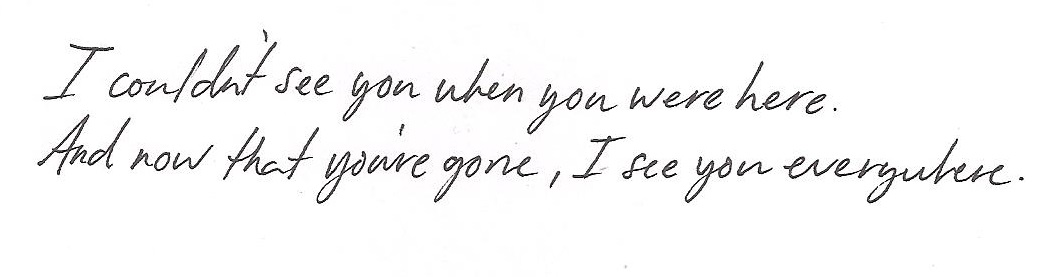 I couldn't see you when you were here.
And now that you're gone, I see you everywhere.